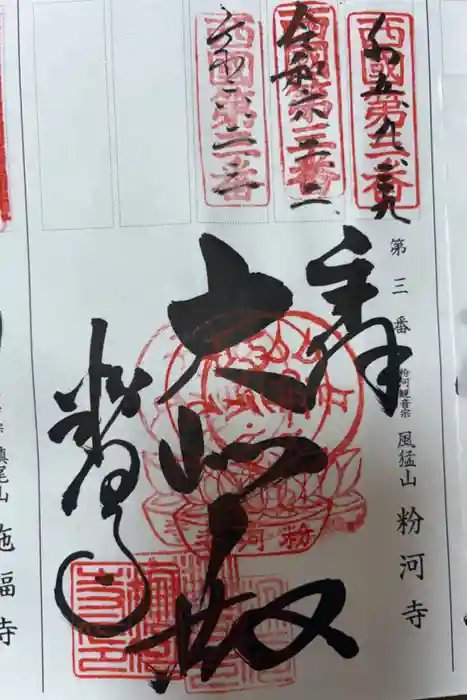 第三番 粉河観音宗 風猛山 粉河寺
西國第三番
西國第三番
西國第三番
令和六、三、二
奉拝
大悲殿
粉河寺
粉河寺
尾山 施福寺